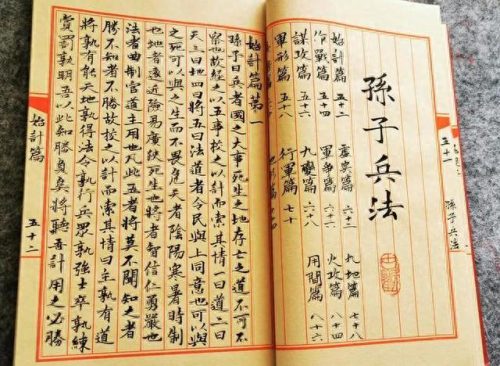 五十一
孫子兵法
孫子兵法
始計篇 五十二 虛實篇 六十三 九地篇 七十八
作戰篇 五十四 軍爭篇 六十六 火攻篇 八十四
謀攻篇 五十六 九變篇 六十八 用間篇 八十六
軍形篇 五十八 行軍篇 七十
始計篇第一
孫子曰兵者國之大事死生之地存亡之道不可不
察也故經之以五事校之以計而索其情一曰道二曰
天三曰地四曰將五曰法道者令民與上同意也可以與
之死可以與之生而不畏危天者陰陽寒暑時制
也地者遠近險易廣狹死生也將者智信仁勇嚴也
法者曲制官道主用也凡此五者將莫不聞知之者
勝不知者不勝故校之以計而索其情曰主孰有道
將孰有能天地孰得法令孰行兵眾孰強士卒孰練
賞罰孰明吾以此知勝負矣將聽吾計用之必勝
始計篇
五十二